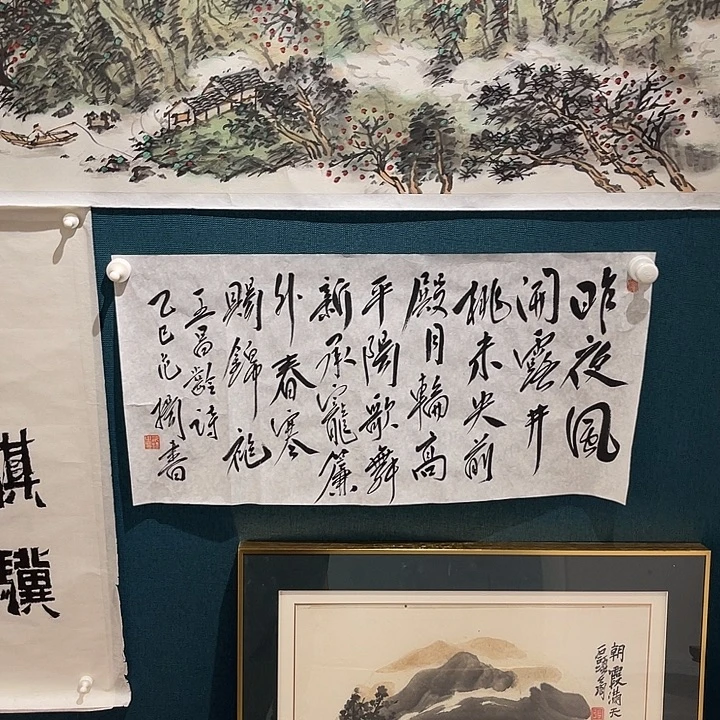 昨夜風
開露井
桃未央前
殿月輪高
平陽歌舞
新承寵簾
外春寒
賜錦袍
王昌齡詩
乙巳范書
驥
朝霞滿天